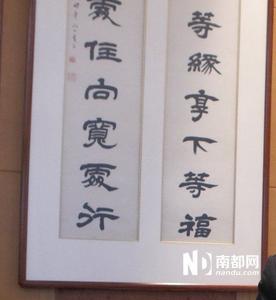 等緣享下等福
處住向寬處行
南都网
nandu.com